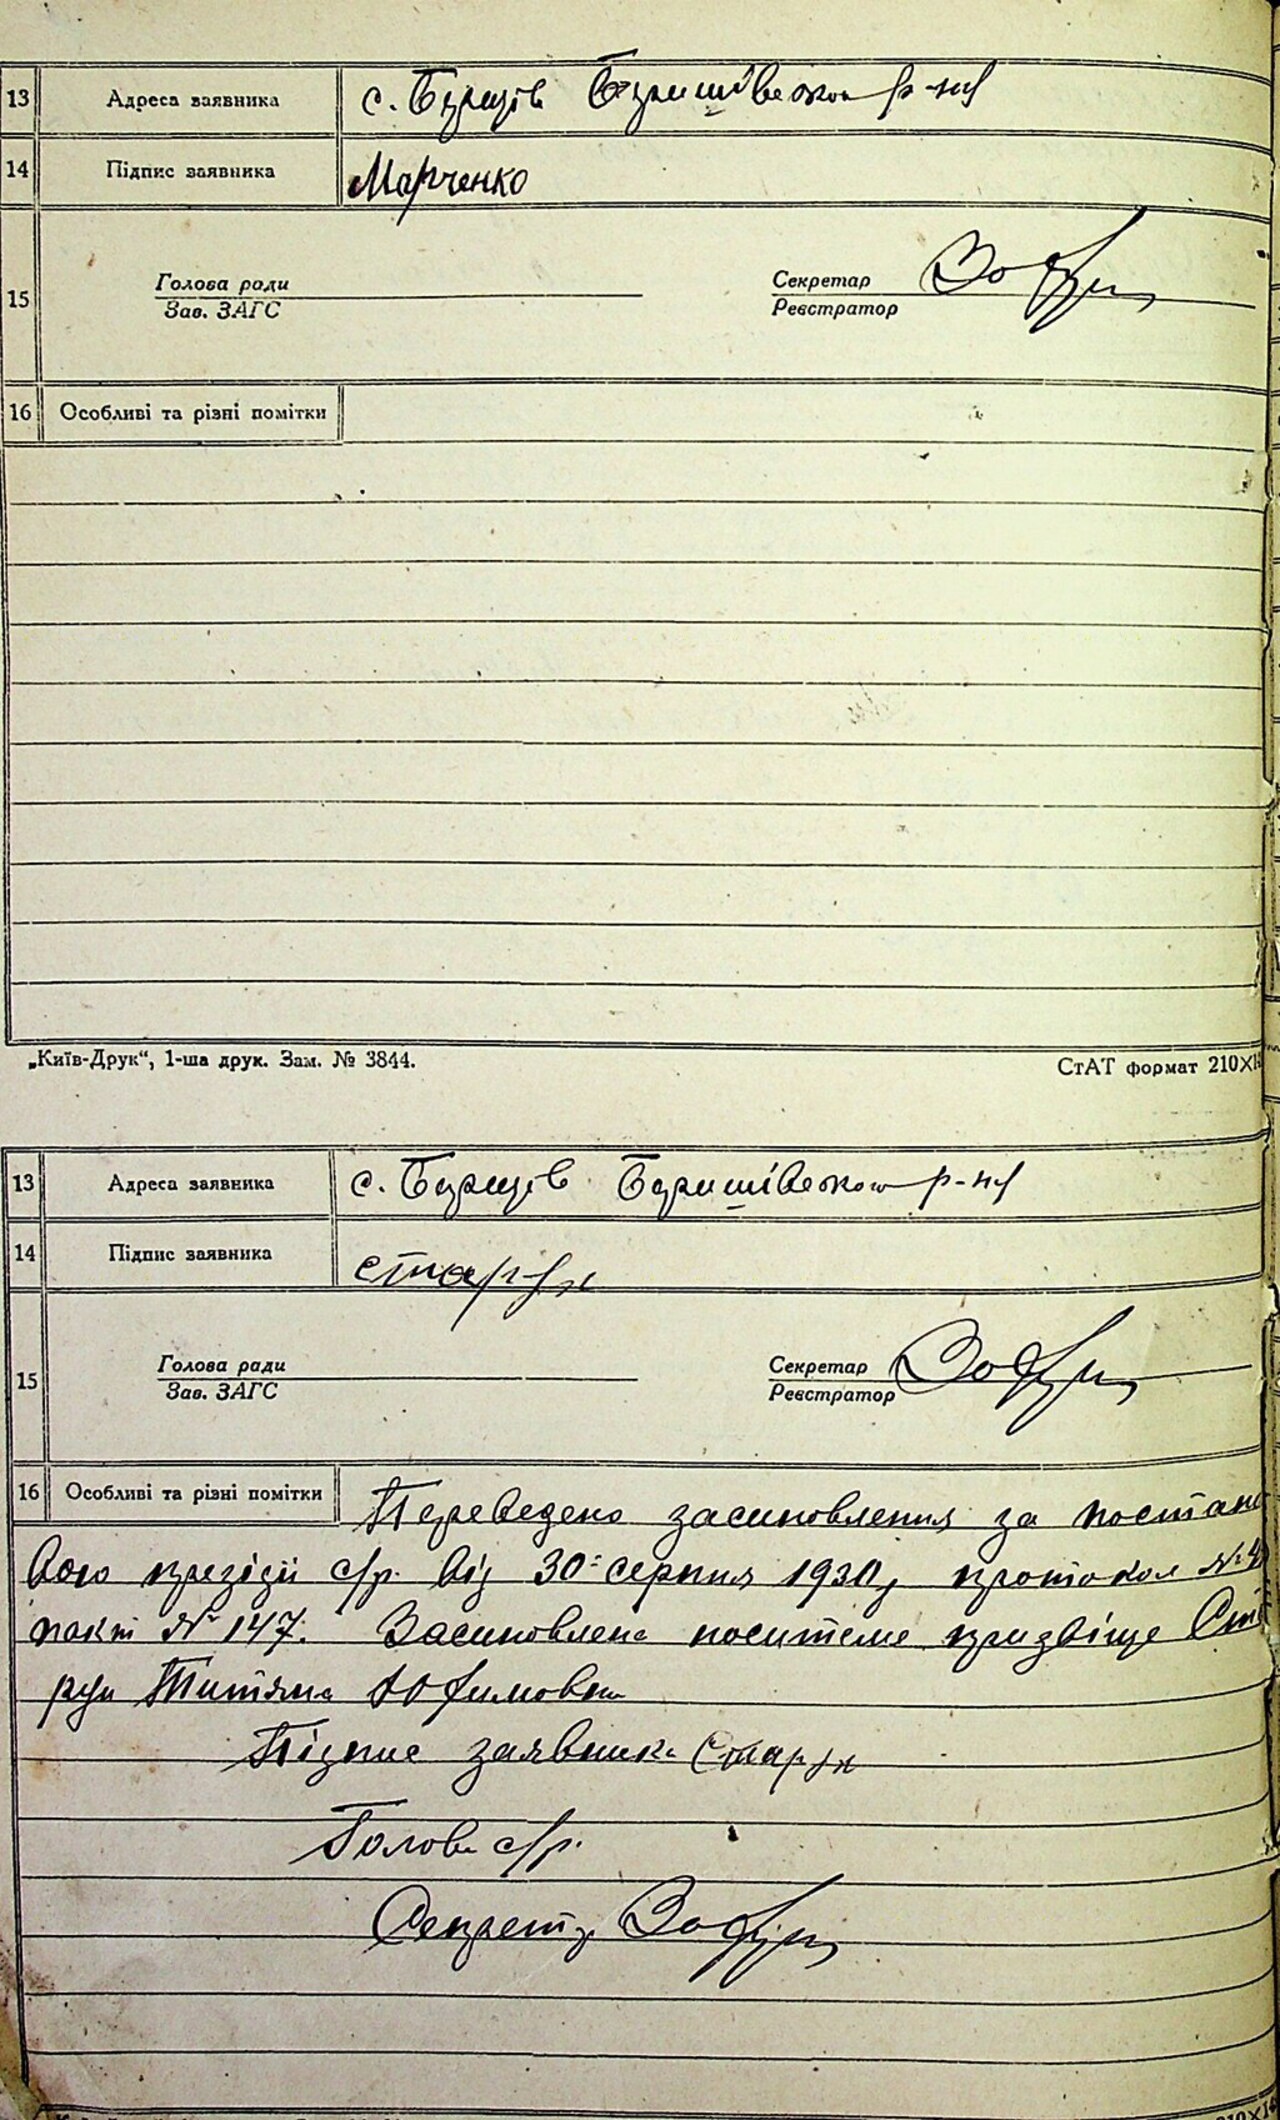 13 Адреса заявника с. Борщів Баришівського р-ну
14 Підпис заявника Марченко
15 Голова ради Секретар
Зав. ЗАГС Реєстратор
16 Особливі та різні помітки
„Київ-Друк“, 1-ша друк. Зам. № 3844. СтАТ формат 210×
13 Адреса заявника с. Борщів Баришівського р-ну
14 Підпис заявника
15 Голова ради Секретар
Зав. ЗАГС Реєстратор
16 Особливі та різні помітки Переведено засиновлення за постано
вою президії с/р. від 30 серпня 1930, протокол №
пакт № 147. Засиновлена носитеме призвіще
Титяна Юхимовна
Підпис заявника
Голова с/р.
Секретар